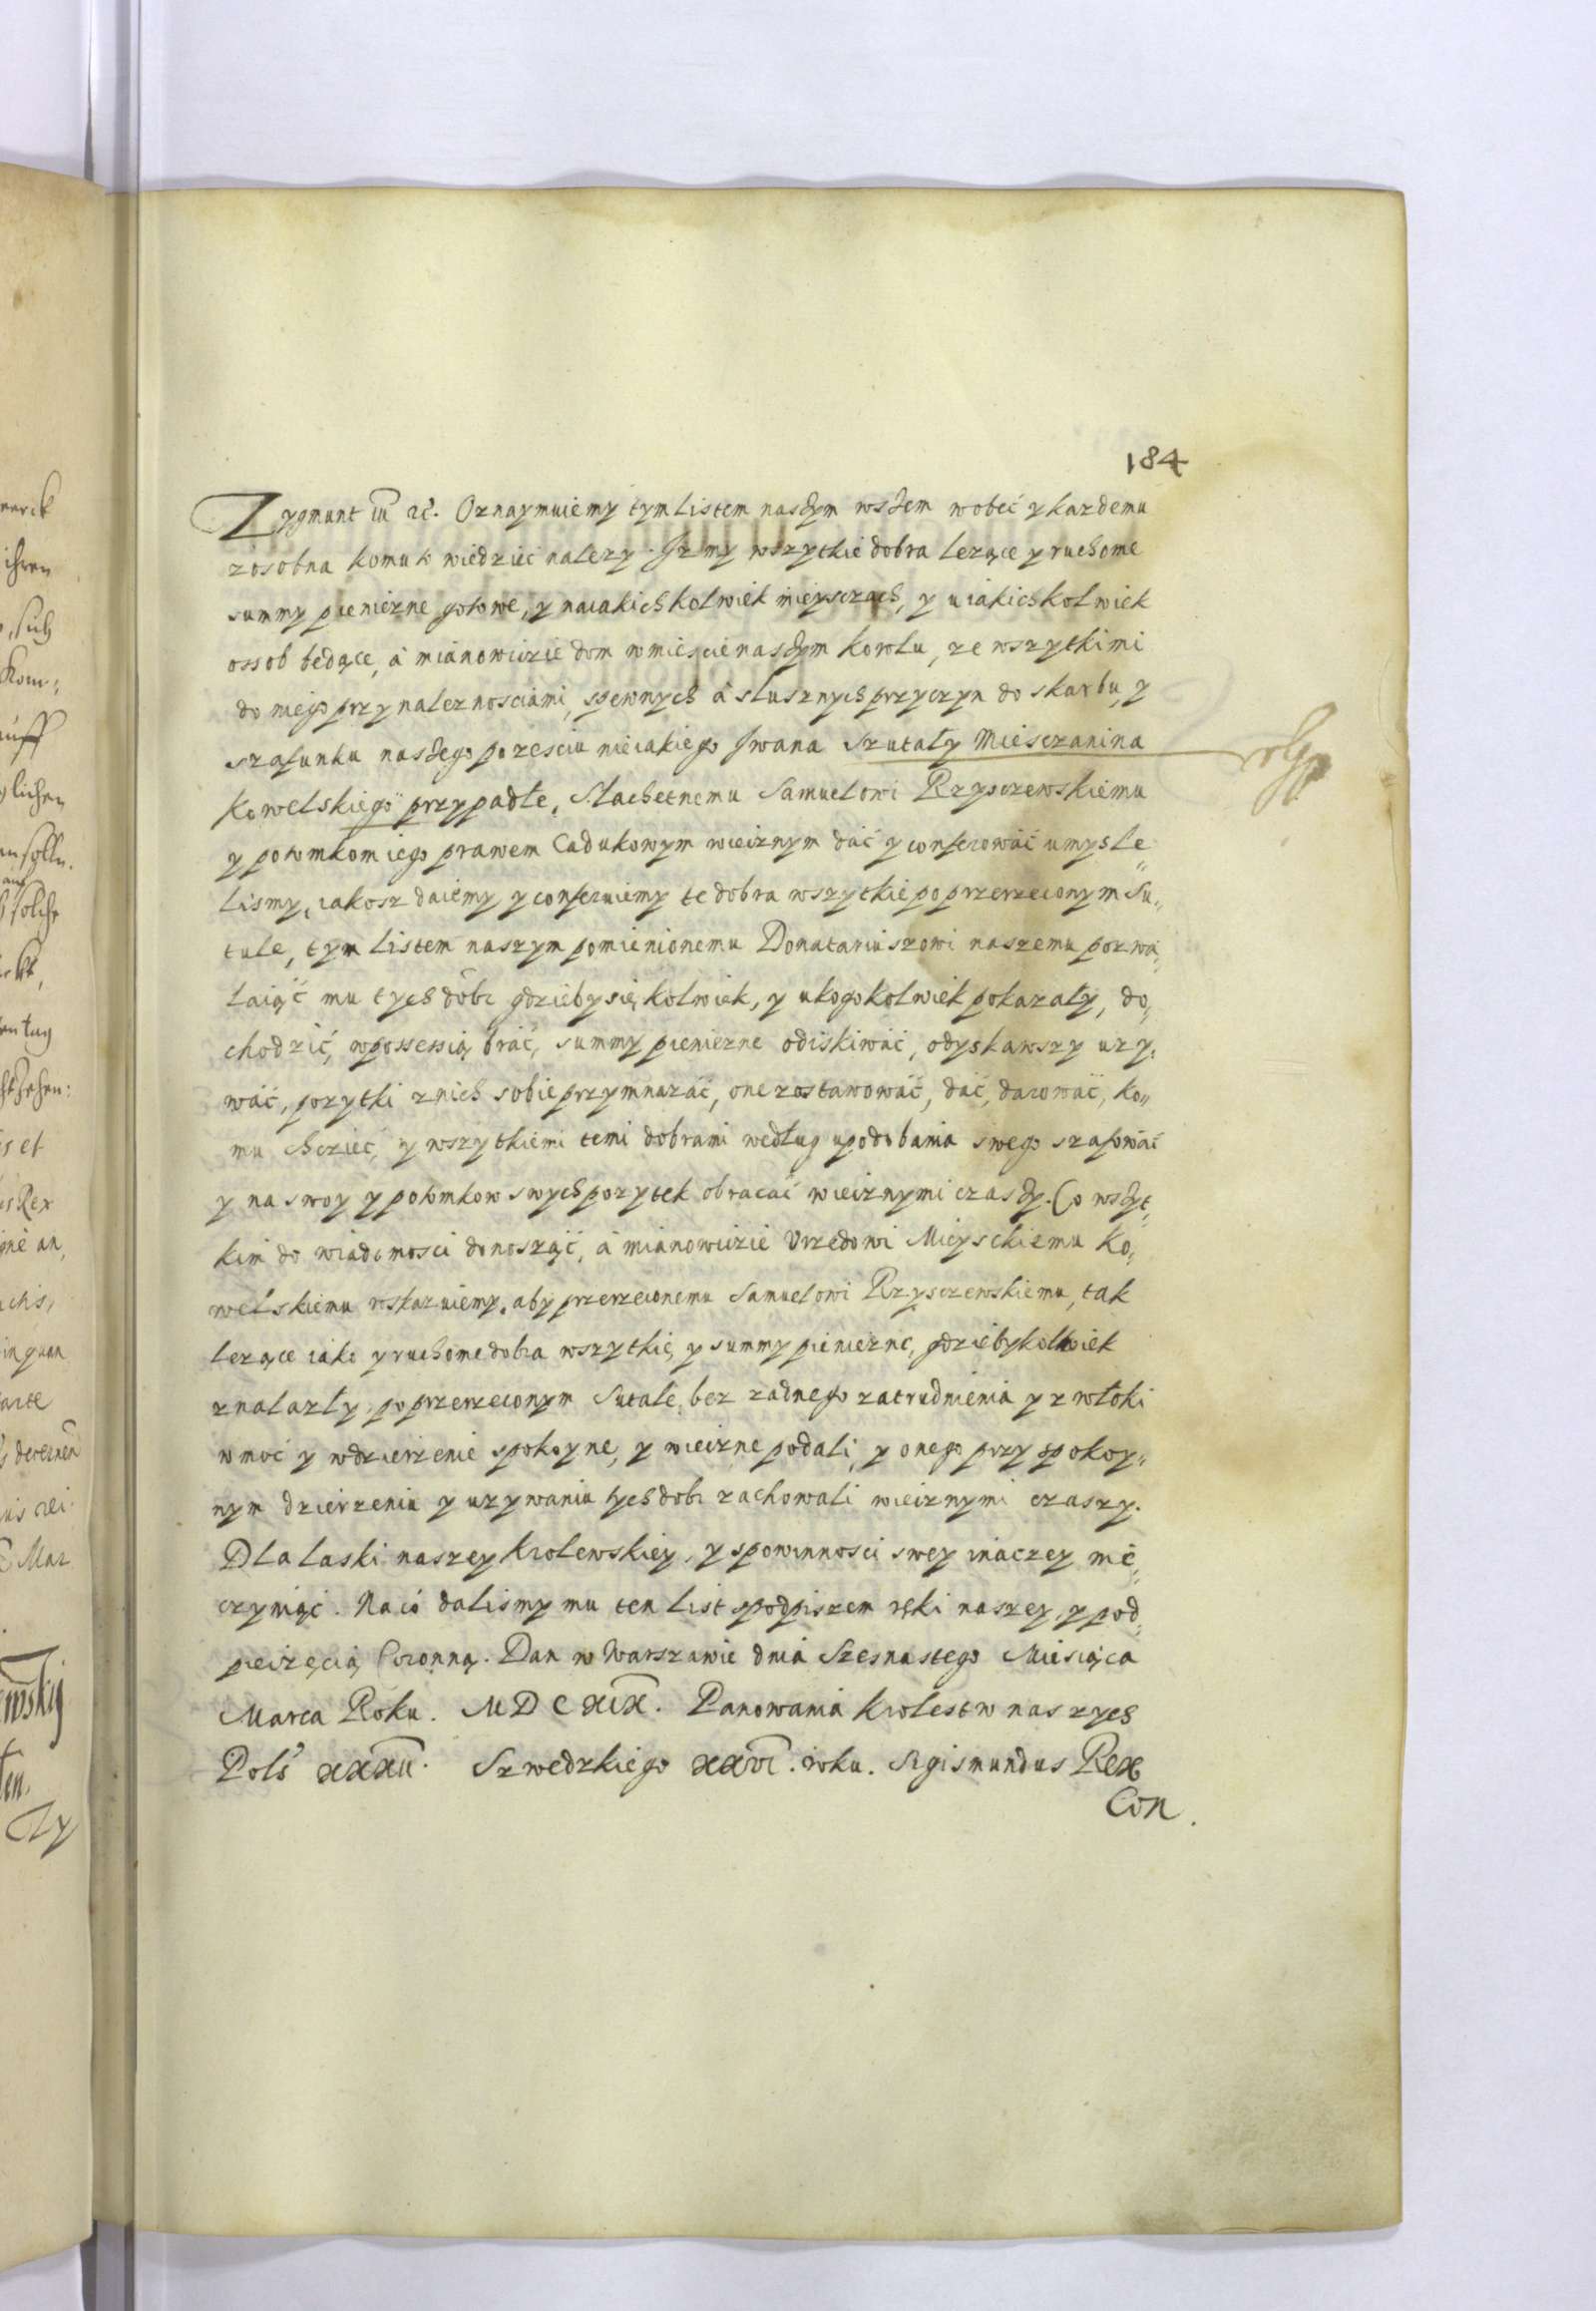 184
Zygmunt III etc. Oznaymuiemy tym listem naszym wszem wobec y kazdemu
zosobna komu to wiedziec nalezy. Iz my wszytkie dobra lezące y ruchome
summy pieniezne gotowe, y na iakichkolwiek mieyscach, y u iakichkolwiek
ossob będące, à mianowicie dom w miescie naszym Kowlu, ze wszytkimi
do niego przynaleznosciami, spewnych à slusznych przyczyn do skarbu, y
szafunku naszego po zesciu nieiakiego Iwana Szutaly Miesczanina
Kowelskiego przypadłe, Slachetnemu Samuelowi Rzysczewskiemu
y potomkom iego prawem Cadukowym wiecznym dać y conferować umysle„
lismy, iakosz daiemy y conferuiemy te dobra wszytkie po przerzeconym Su„
tule, tym listem naszym pomienionemu Donatariuszowi naszemu pozwa„
laiąć mu tych dobr gdzieby się kolwiek, y ukogokolwiek pokazały, do„
chodzić, w possessią brać, summy pieniezne odiskiwać, odyskawszy uzy„
wać, pozytki znich sobie przymnazáć, one zostawować, dać, darować, ko„
mu chcieć, y wszytkiemi temi dobrami według upodobania swego szafować
y na swoy y potomkow swych pozytek obracać wiecznymi czaszy. Co wszyt„
kim do wiadomosci donosząć, à mianowicie Urzędowi Mieyskiemu Ko„
welskiemu rskazuiemy, aby przerzeconemu Samuelowi Rzysczewskiemu, tak
lezące iako y ruchome dobra wszytkie, y summy pieniezne, gdziebykolwiek
znalazły, po przerzeconym Sutale, bez zadnego zatrudnienia y zwłoki
w moć y w dzierzenie spokoyne, y wieczne podali, y onego przy spokoy„
nym dzierzeniu y uzywaniu tych dobr zachowali wiecznymi czaszy.
Dla laski naszey Krolewskiey, y spowinnosci swey inaczey nie„
czyniąc. Na co dalismy mu ten list spodpiszem ręki naszey, y pod„
pieczęcią Coronną. Dan w Warszawie dnia Szesnastego Miesiąca
Marca Roku. MDCXIX. Panowania Krolestw naszych
Pols XXXII. Szwedzkiego XXVI. roku. Sigismundus Rex
Con.